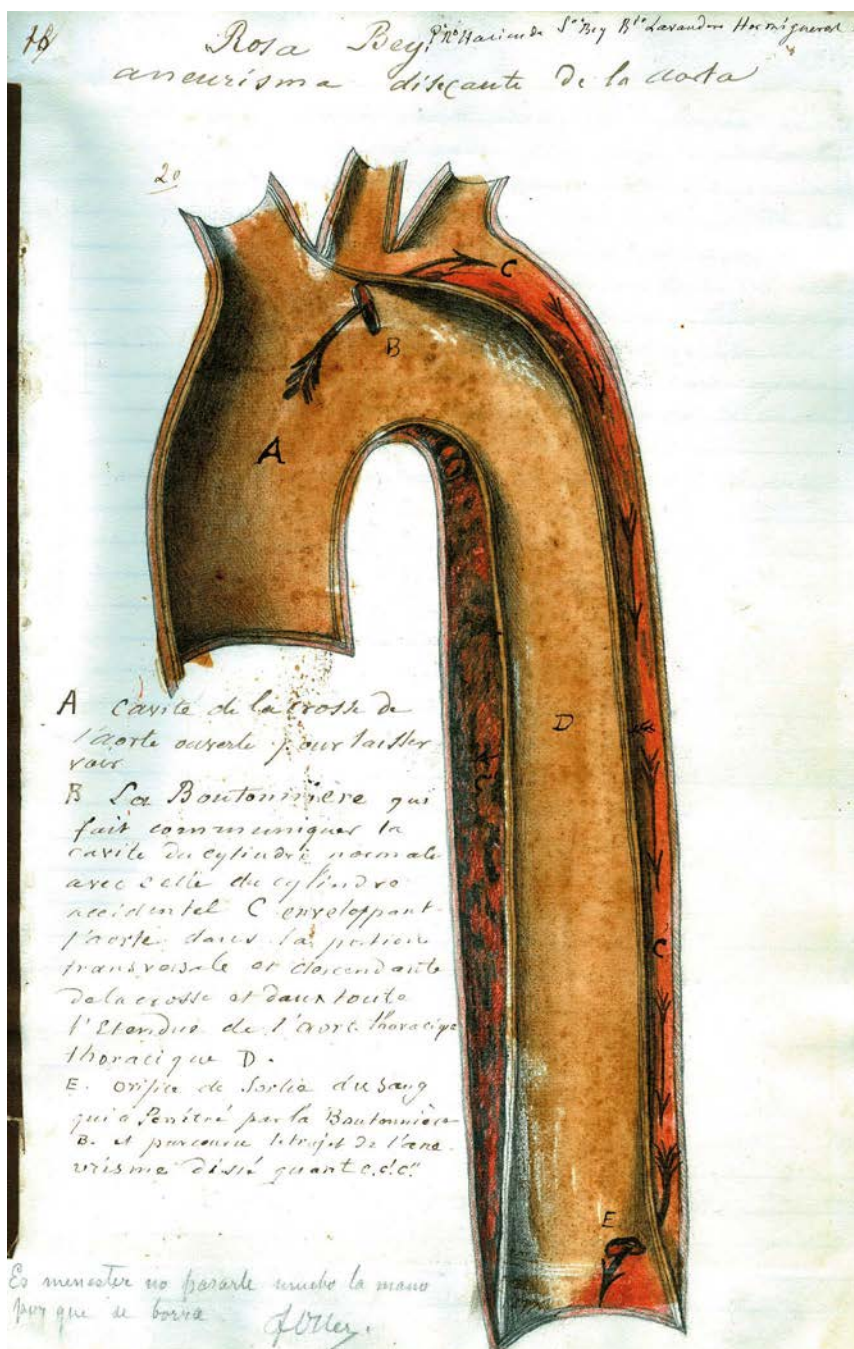 18
Rosa Bey. Pno Hacienda Sn Bey Bo Lavandero Hormigueros
aneurisma diseçante de la aorta
20
C
B
A
D
C
C
E
A cavité de la crosse de
l'aorte ouverte pour laisser
voir
B La Boutonnière qui
fait communiquer la
cavite du cylindre normale
avec celle du cylindre
accidentel C enveloppant
l'aorte dans la portion
transversale et descendante
de la crosse et dans toute
l'Etendue de l'aorte thoracique
thoracique D.
E. orifice de Sortie du sang
qui a Penétré par la Boutonnière
B. et parcouru le trajet de l'ane
vrisme dissé quant c.c'.c"
Es menester no pasarle mucho la mano
por que se borra